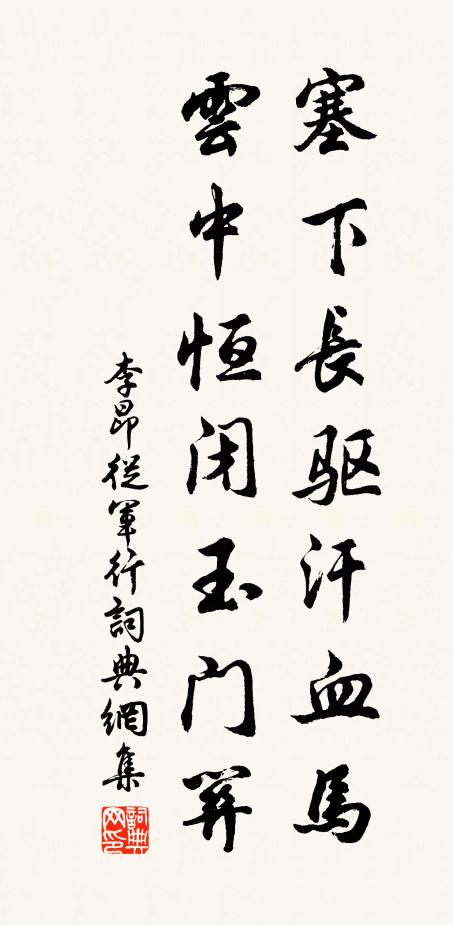 塞下長驱汗血馬
雲中恒闭玉门關
李昂從軍行詞典網集
詞典
网印